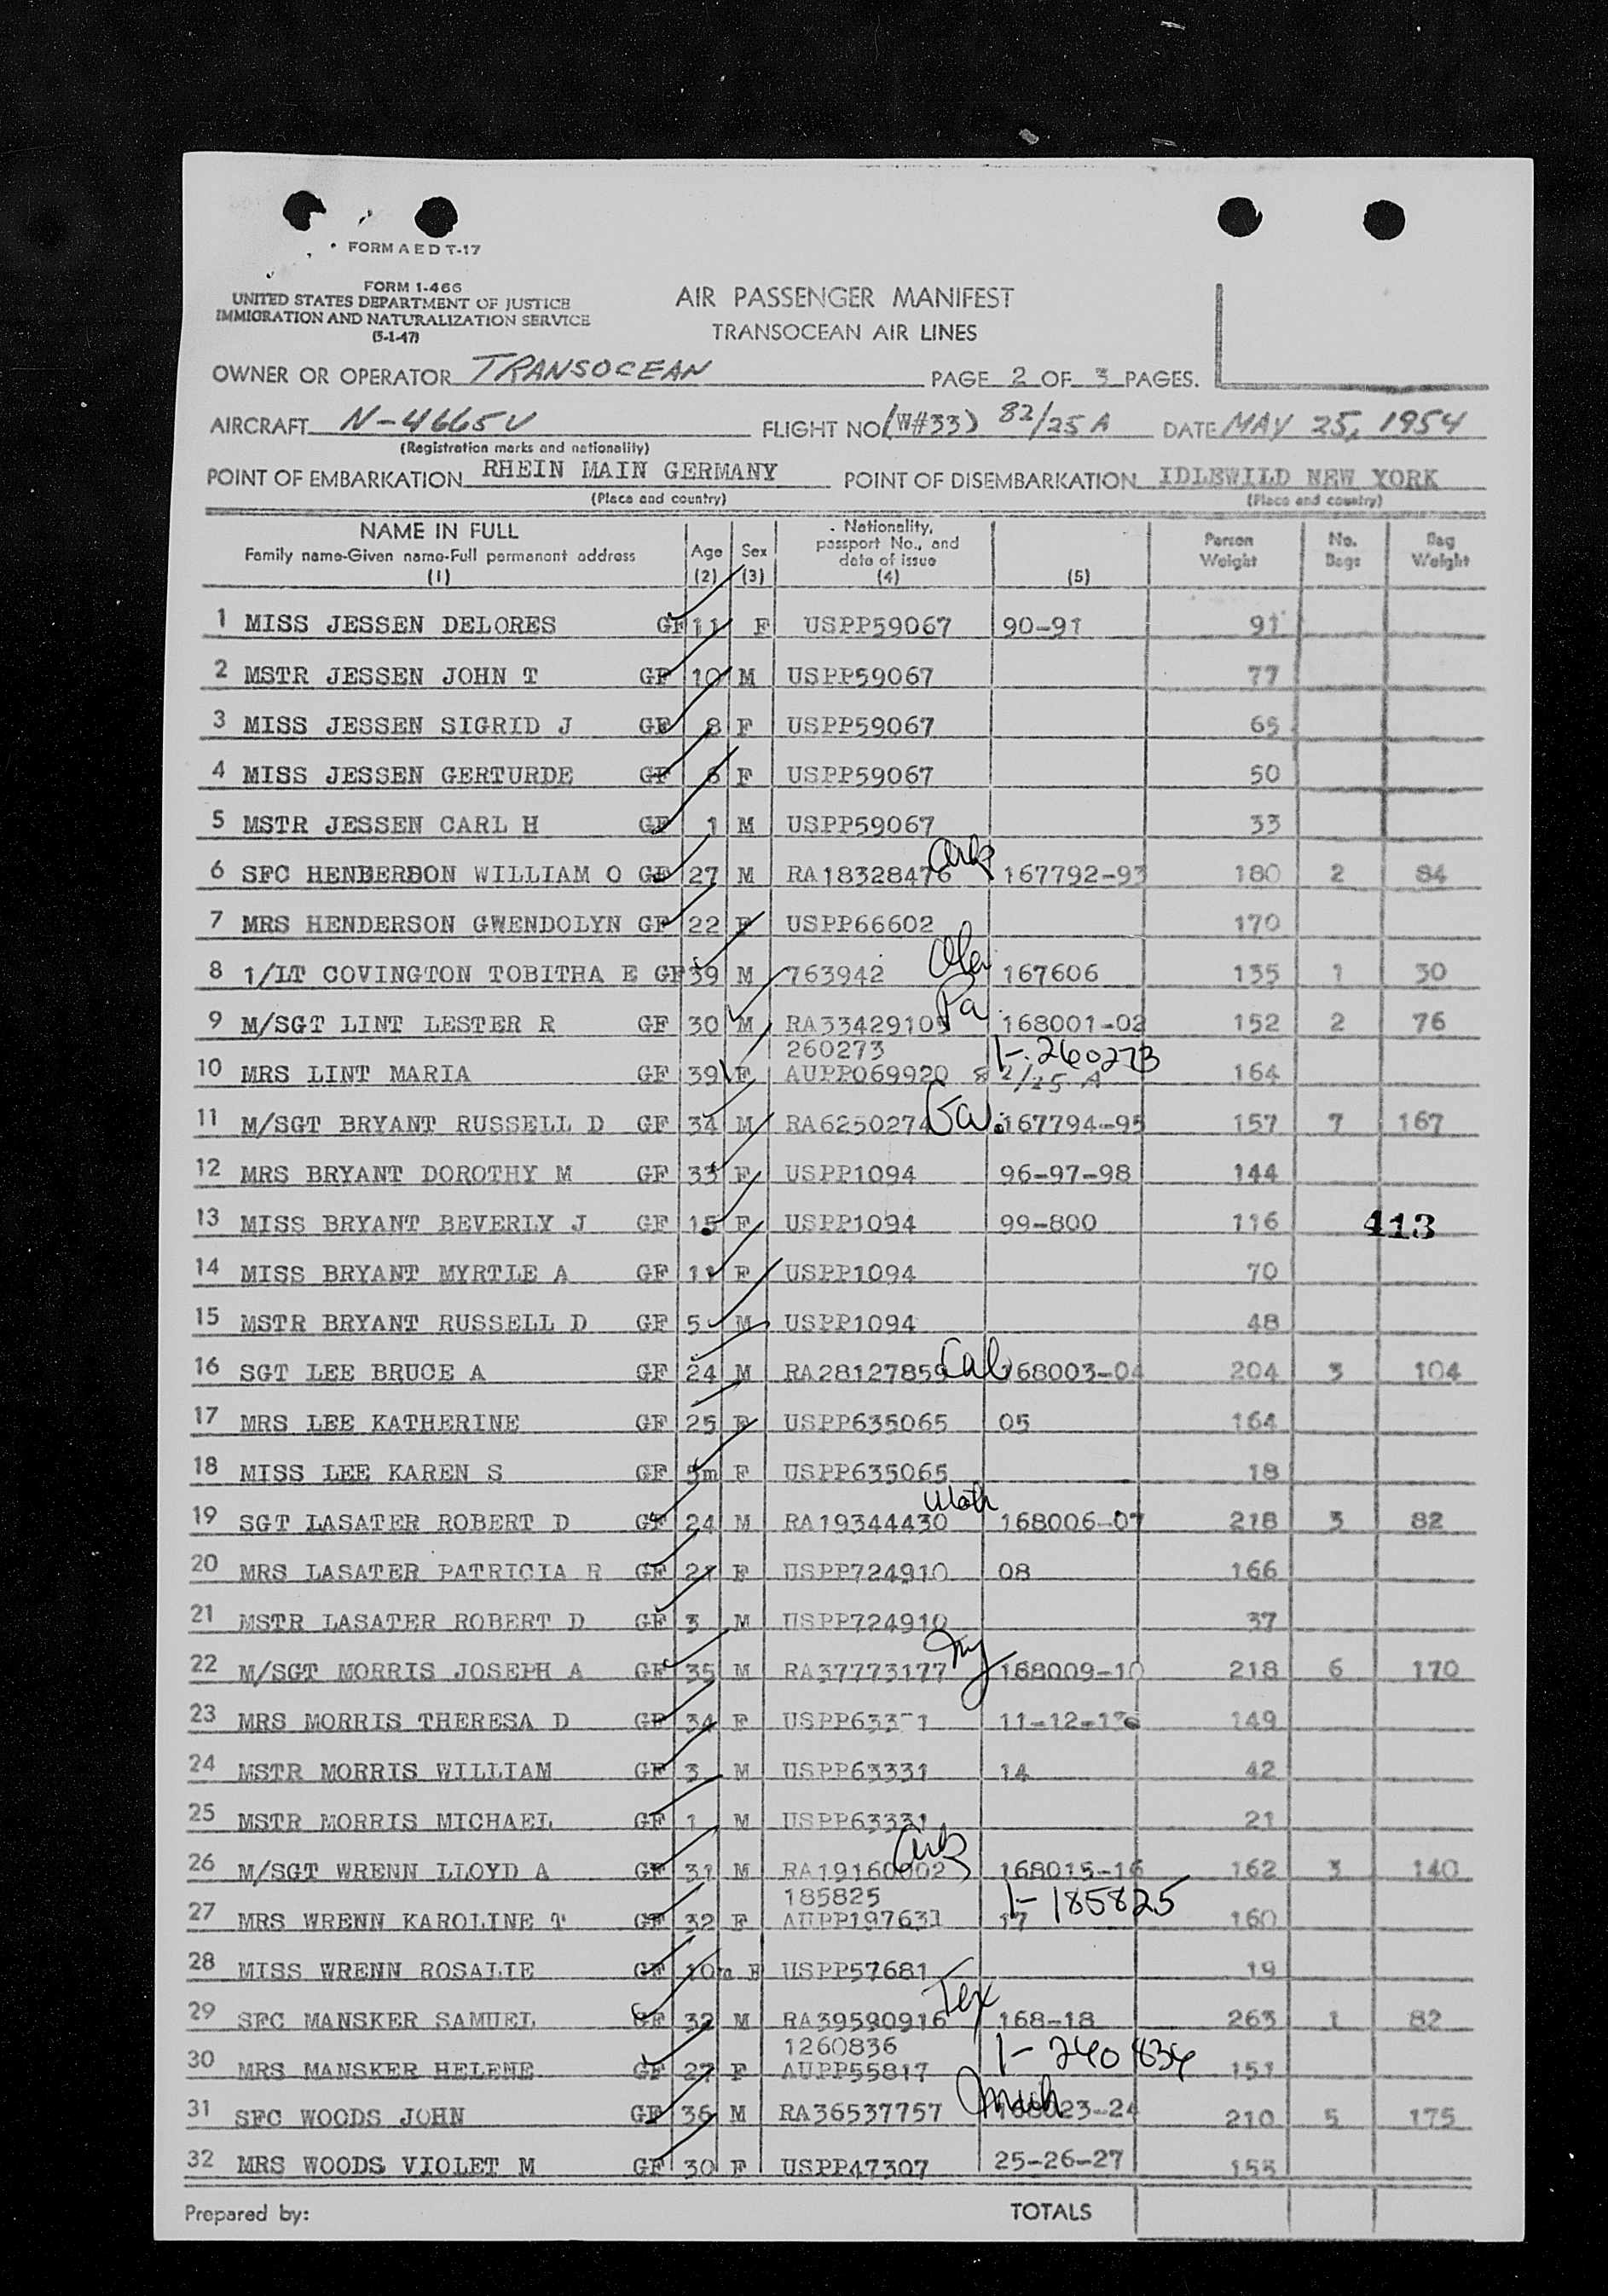 FORM A E D T-17
FORM 1-466
UNITED STATES DEPARTMENT OF JUSTICE
IMMIGRATION AND NATURALIZATION SERVICE
(5-1-47)
AIR PASSENGER MANIFEST
TRANSOCEAN AIR LINES
OWNER OR OPERATOR TRANSOCEAN PAGE 2 OF 3 PAGES.
AIRCRAFT N-4665V FLIGHT NO (W#33) 82/25 A DATE MAY 25, 1954
(Registration marks and nationality)
POINT OF EMBARKATION RHEIN MAIN GERMANY POINT OF DISEMBARKATION IDLEWILD NEW YORK
(Place and country) (Place and country)
NAME IN FULL Family name-Given name-Full permanent address (1) Age (2) Sex (3) Nationality, passport No., and date of issue (4) (5) Person Weight No. Bags Bag Weight
1 MISS JESSEN DELORES GF 11 F USPP59067 90-91 91
2 MSTR JESSEN JOHN T GF 10 M USPP59067 77
3 MISS JESSEN SIGRID J GF 8 F USPP59067 65
4 MISS JESSEN GERTURDE GF 6 F USPP59067 50
5 MSTR JESSEN CARL H GF 1 M USPP59067 33
6 SFC HENDERSON WILLIAM O GF 27 M RA18328476 Ark 167792-93 180 2 84
7 MRS HENDERSON GWENDOLYN GF 22 F USPP66602 170
8 1/LT COVINGTON TOBITHA E GF 39 M 763942 167606 135 1 30
9 M/SGT LINT LESTER R GF 30 M RA33429105 Pa 168001-02 152 2 76
260273 1-260273
10 MRS LINT MARIA GF 39 F AUPP069920 82/25 A 164
11 M/SGT BRYANT RUSSELL D GF 34 M RA6250274 Ga. 167794-95 157 7 167
12 MRS BRYANT DOROTHY M GF 33 F USPP1094 96-97-98 144
13 MISS BRYANT BEVERLY J GF 15 F USPP1094 99-800 116 413
14 MISS BRYANT MYRTLE A GF 11 F USPP1094 70
15 MSTR BRYANT RUSSELL D GF 5 M USPP1094 48
16 SGT LEE BRUCE A GF 24 M RA28127859 Cal 168003-04 204 3 104
17 MRS LEE KATHERINE GF 25 F USPP635065 05 164
18 MISS LEE KAREN S GF 5m F USPP635065 18
19 SGT LASATER ROBERT D GF 24 M RA19344430 168006-07 218 3 82
20 MRS LASATER PATRICIA R GF 21 F USPP724910 08 166
21 MSTR LASATER ROBERT D GF 3 M USPP724910 37
22 M/SGT MORRIS JOSEPH A GF 35 M RA37773177 ny 168009-10 218 6 170
23 MRS MORRIS THERESA D GF 34 F 11-12-13 149
24 MSTR MORRIS WILLIAM GF 3 M USPP63331 14 42
25 MSTR MORRIS MICHAEL GF 1 M USPP63331 21
26 M/SGT WRENN LLOYD A GF 31 M RA19160002 168015-16 162 3 140
185825 1-185825
27 MRS WRENN KAROLINE T GF 32 F AUPP197631 17 160
28 MISS WRENN ROSALIE GF 10m F USPP57681 19
29 SFC MANSKER SAMUEL GF 32 M RA39590916 Tex 168-18 263 1 82
1260836 1-260836
30 MRS MANSKER HELENE GF 27 F AUPP55817 151
31 SFC WOODS JOHN GF 36 M RA36537757 Mich 168023-24 210 5 175
32 MRS WOODS VIOLET M GF 30 F USPP47307 25-26-27 155
Prepared by: TOTALS